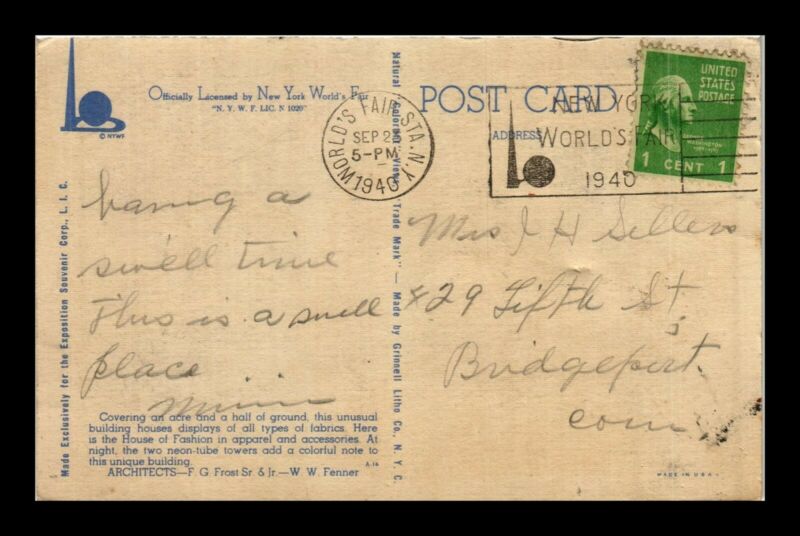 © NYWF
Officially Licensed by New York World's Fair
"N. Y. W. F. LIC. N 1020"
POST CARD
ADDRESS
WORLD'S FAIR STA. N.Y.
SEP 2
5-PM
1940
NEW YORK
WORLD'S FAIR
1940
UNITED
STATES
POSTAGE
WASHINGTON
1 CENT 1
having a
swell time
This is a swell
place
Mrs J H Sellers
429 Fifth St
Bridgeport
Conn
Covering an acre and a half of ground, this unusual
building houses displays of all types of fabrics. Here
is the House of Fashion in apparel and accessories. At
night, the two neon-tube towers add a colorful note to
this unique building.
A-16
ARCHITECTS—F. G. Frost Sr. & Jr.—W. W. Fenner
Made Exclusively for the Exposition Souvenir Corp., L. I. C.
Natural "Colored Views" Trade Mark" — Made by Grinnell Litho Co., N. Y. C.
MADE IN U.S.A.